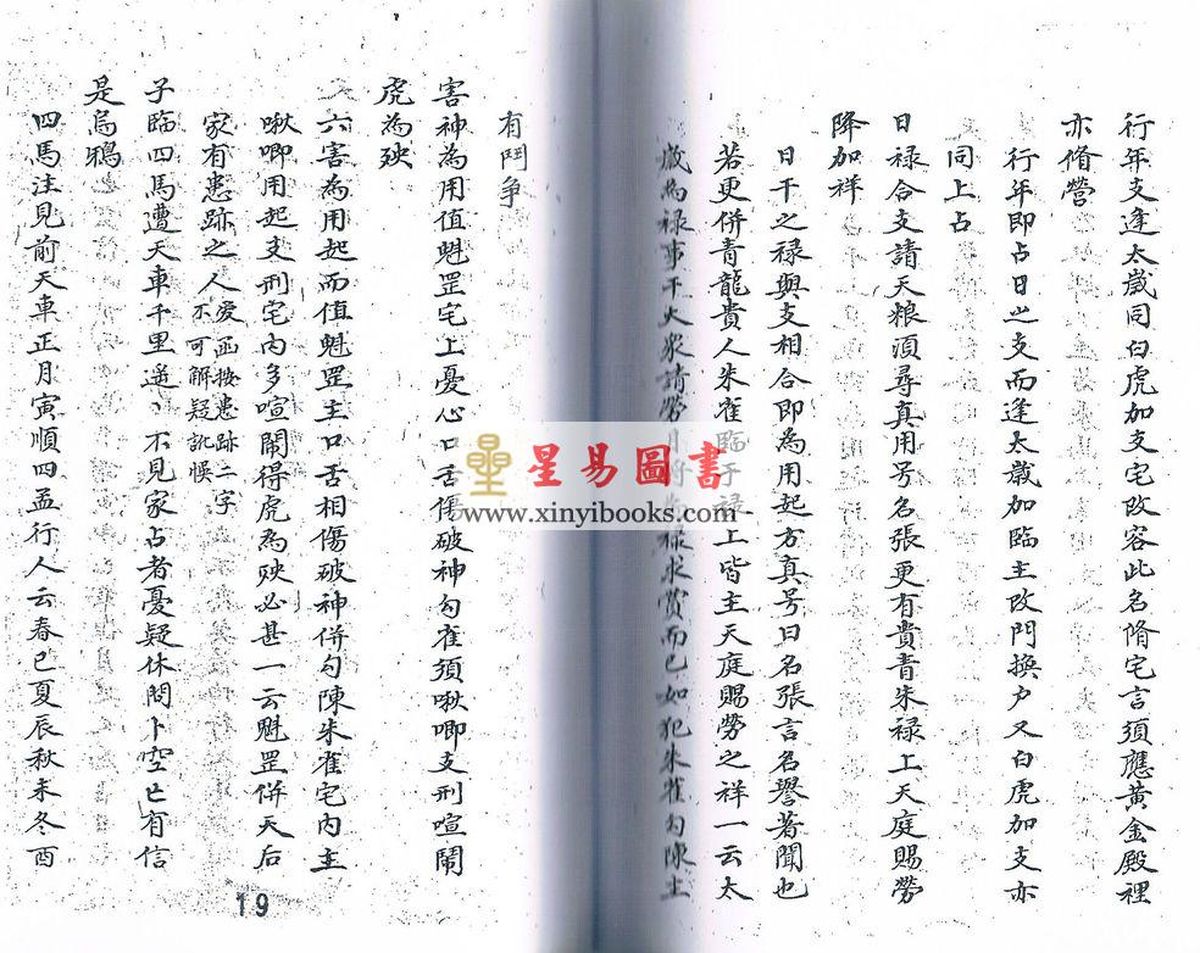 行年支逢太歲同白虎加支宅改容此名脩宅言須應黃金殿裡
亦脩營
行年即占日之支而逢太歲加臨主改門換户又白虎加支亦
同上占
日禄合支請天粮須尋真用号名張更有貴青朱禄上天庭賜勞
降加祥
日干之禄與支相合即為用起方真号曰名張言名譽著聞也
若更併青龍貴人朱雀臨于禄上皆主天庭賜勞之祥一云太
歲為禄事干大眾請勞月將為禄求賞而已如犯朱雀勾陳主
有鬥争
害神為用值魁罡宅上憂心口舌傷破神勾雀須啾唧支刑喧鬧
虎為殃
六害為用起而值魁罡主口舌相傷破神併勾陳朱雀宅内主
啾唧用起支刑宅内多喧鬧得虎為殃必甚一云魁罡併天后
家有患跡之人
愛函按患跡二字
不可解疑訛悞
子臨四馬遭天車千里遥丶不見家占者憂疑休問卜空亡有信
是烏鴉
四馬注見前天車正月寅順四孟行人云春巳夏辰秋未冬酉
19
星易圖書
www.xinyibooks.com